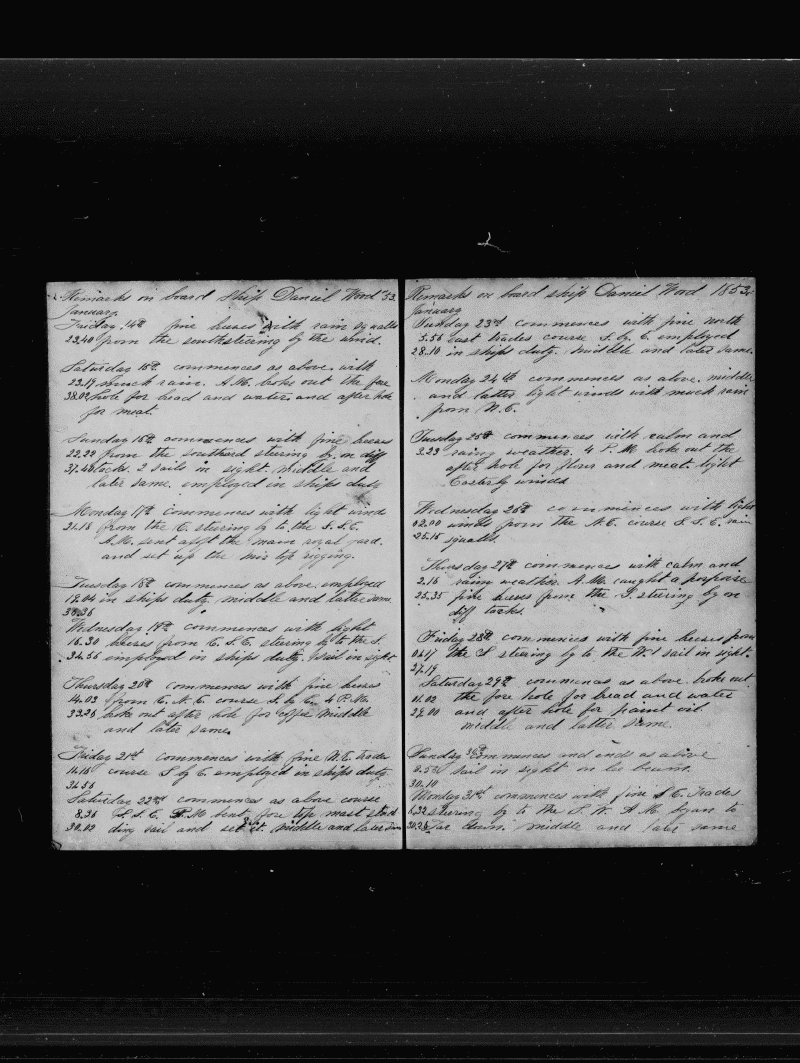 Remarks on board Ship Daniel Wood 53.
January.
Friday 14th fine breses with rain squalls
23.40 from the south steering by the wind.
Saturday 15th commences as above with
23.17 much rain. A.M. broke out the fore
38.02 hole for bread and water and after hole
for meat.
Sunday 16th commences with fine breses
22.22 from the southard steering by on diff
37.40 tacks. 2 sails in sight. middle and
later same. employed in ships duty
Monday 17th commences with light wind
21.18 from the E. steering by to the S.S.E.
A.M. sent apft the main royal yard.
and set up the miz top rigging.
Tuesday 18th commences as above employed
19.04 in ships duty middle and latter same
36.36
Wednesday 19th commences with light
16.30 breses from E.S.E. steering by to the S.
34.56 employed in ships duty. 1 sail in sight.
Thursday 20th commences with fine breses
14.03 from E.N.E. course S. by E. 4 P.M.
33.26 broke out after hole for coffe middle
and later same.
Friday 21st commences with fine N.E. trades
11.16 course S by E. employed in ships duty
31.56
Saturday 22nd commences as above course
8.36 S.S.E. P.M. sent fore top mast stud
30.02 ding sail and set it. middle and later same
Remarks on board ship Daniel Wood 1853.
January
Sunday 23rd commences with fine north
5.56 east trades course S. by E. employed
28.10 in ships duty. middle and later same.
Monday 24th commences as above. middle
and latter light winds with much rain
from N.E.
Tuesday 25th commences with calm and
2.23 rainy weather. 4 P.M. broke out the
after hole for flour and meat. light
Easterly winds
Wednesday 26th commences with light
02.00 winds from the N.E. course S.S.E. rain
25.15 squalls.
Thursday 27th commences with calm and
2.16 rainy weather. A.M. caught a porpoise
25.35 fine breses from the S. steering by on
diff tacks.
Friday 28th commences with fine breses from
04.17 the S steering by to the W. 1 sail in sight.
27.19
Saturday 29th commences as above. broke out
01.02 the fore hole for bread and water
29.00 and after hole for paint oil.
middle and latter same.
Sunday 30th commences and ends as above
sail in sight on lee beam.
30.10
Monday 31st commences with fine S.E. trades
6.32 steering by to the S.W. A.M. began to
30.26 Tar down. middle and later same